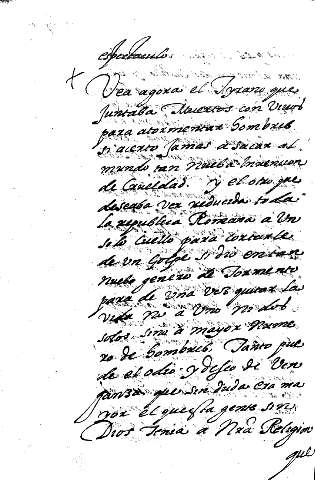 espectaculo.
Vea agora el Tyrano que
juntaba Muertos con Vivos
para atormentar hombres
si acerto jamas a sacar al
mundo tan nueba Invencion
de Crueldad. y el otro que
deseaba ver reducida toda
la republica Romana a Un
solo Cuello para cortarle
de un Golpe si dio en tan
Nuebo genero de Tormento
para de una vez quitar la
vida no a Uno no dos
solos sino a mayor Nume
ro de hombres. Tanto pue
de el odio y deseo de Ven
ganza que sin duda era ma
yor el que esta gente sin
Dios tenia a Nra Religion
que